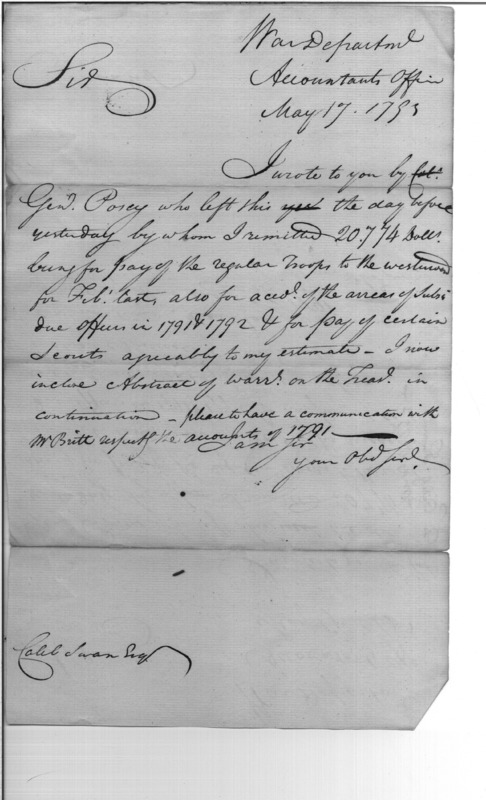 War Departmt
Sir
Accountants Office
May 17. 1793
I wrote to you by Col.
Genl. Posey who left this yest the day before
yesterday by whom I remitted 20.774 Dolls.
being for pay of the regular Troops to the westward
for Feby. last, also for acct. of the arrears of Subs.
due officers in 1791 & 1792 & for pay of certain
Scouts agreeably to my estimate – I now
inclose Abstract of Warrts. on the Treasy. in
continuation – please to have a communication with
Mr Britt respectg the accounts of 1791
I am Sir
your Obd Servt.
Caleb Swan Esqr